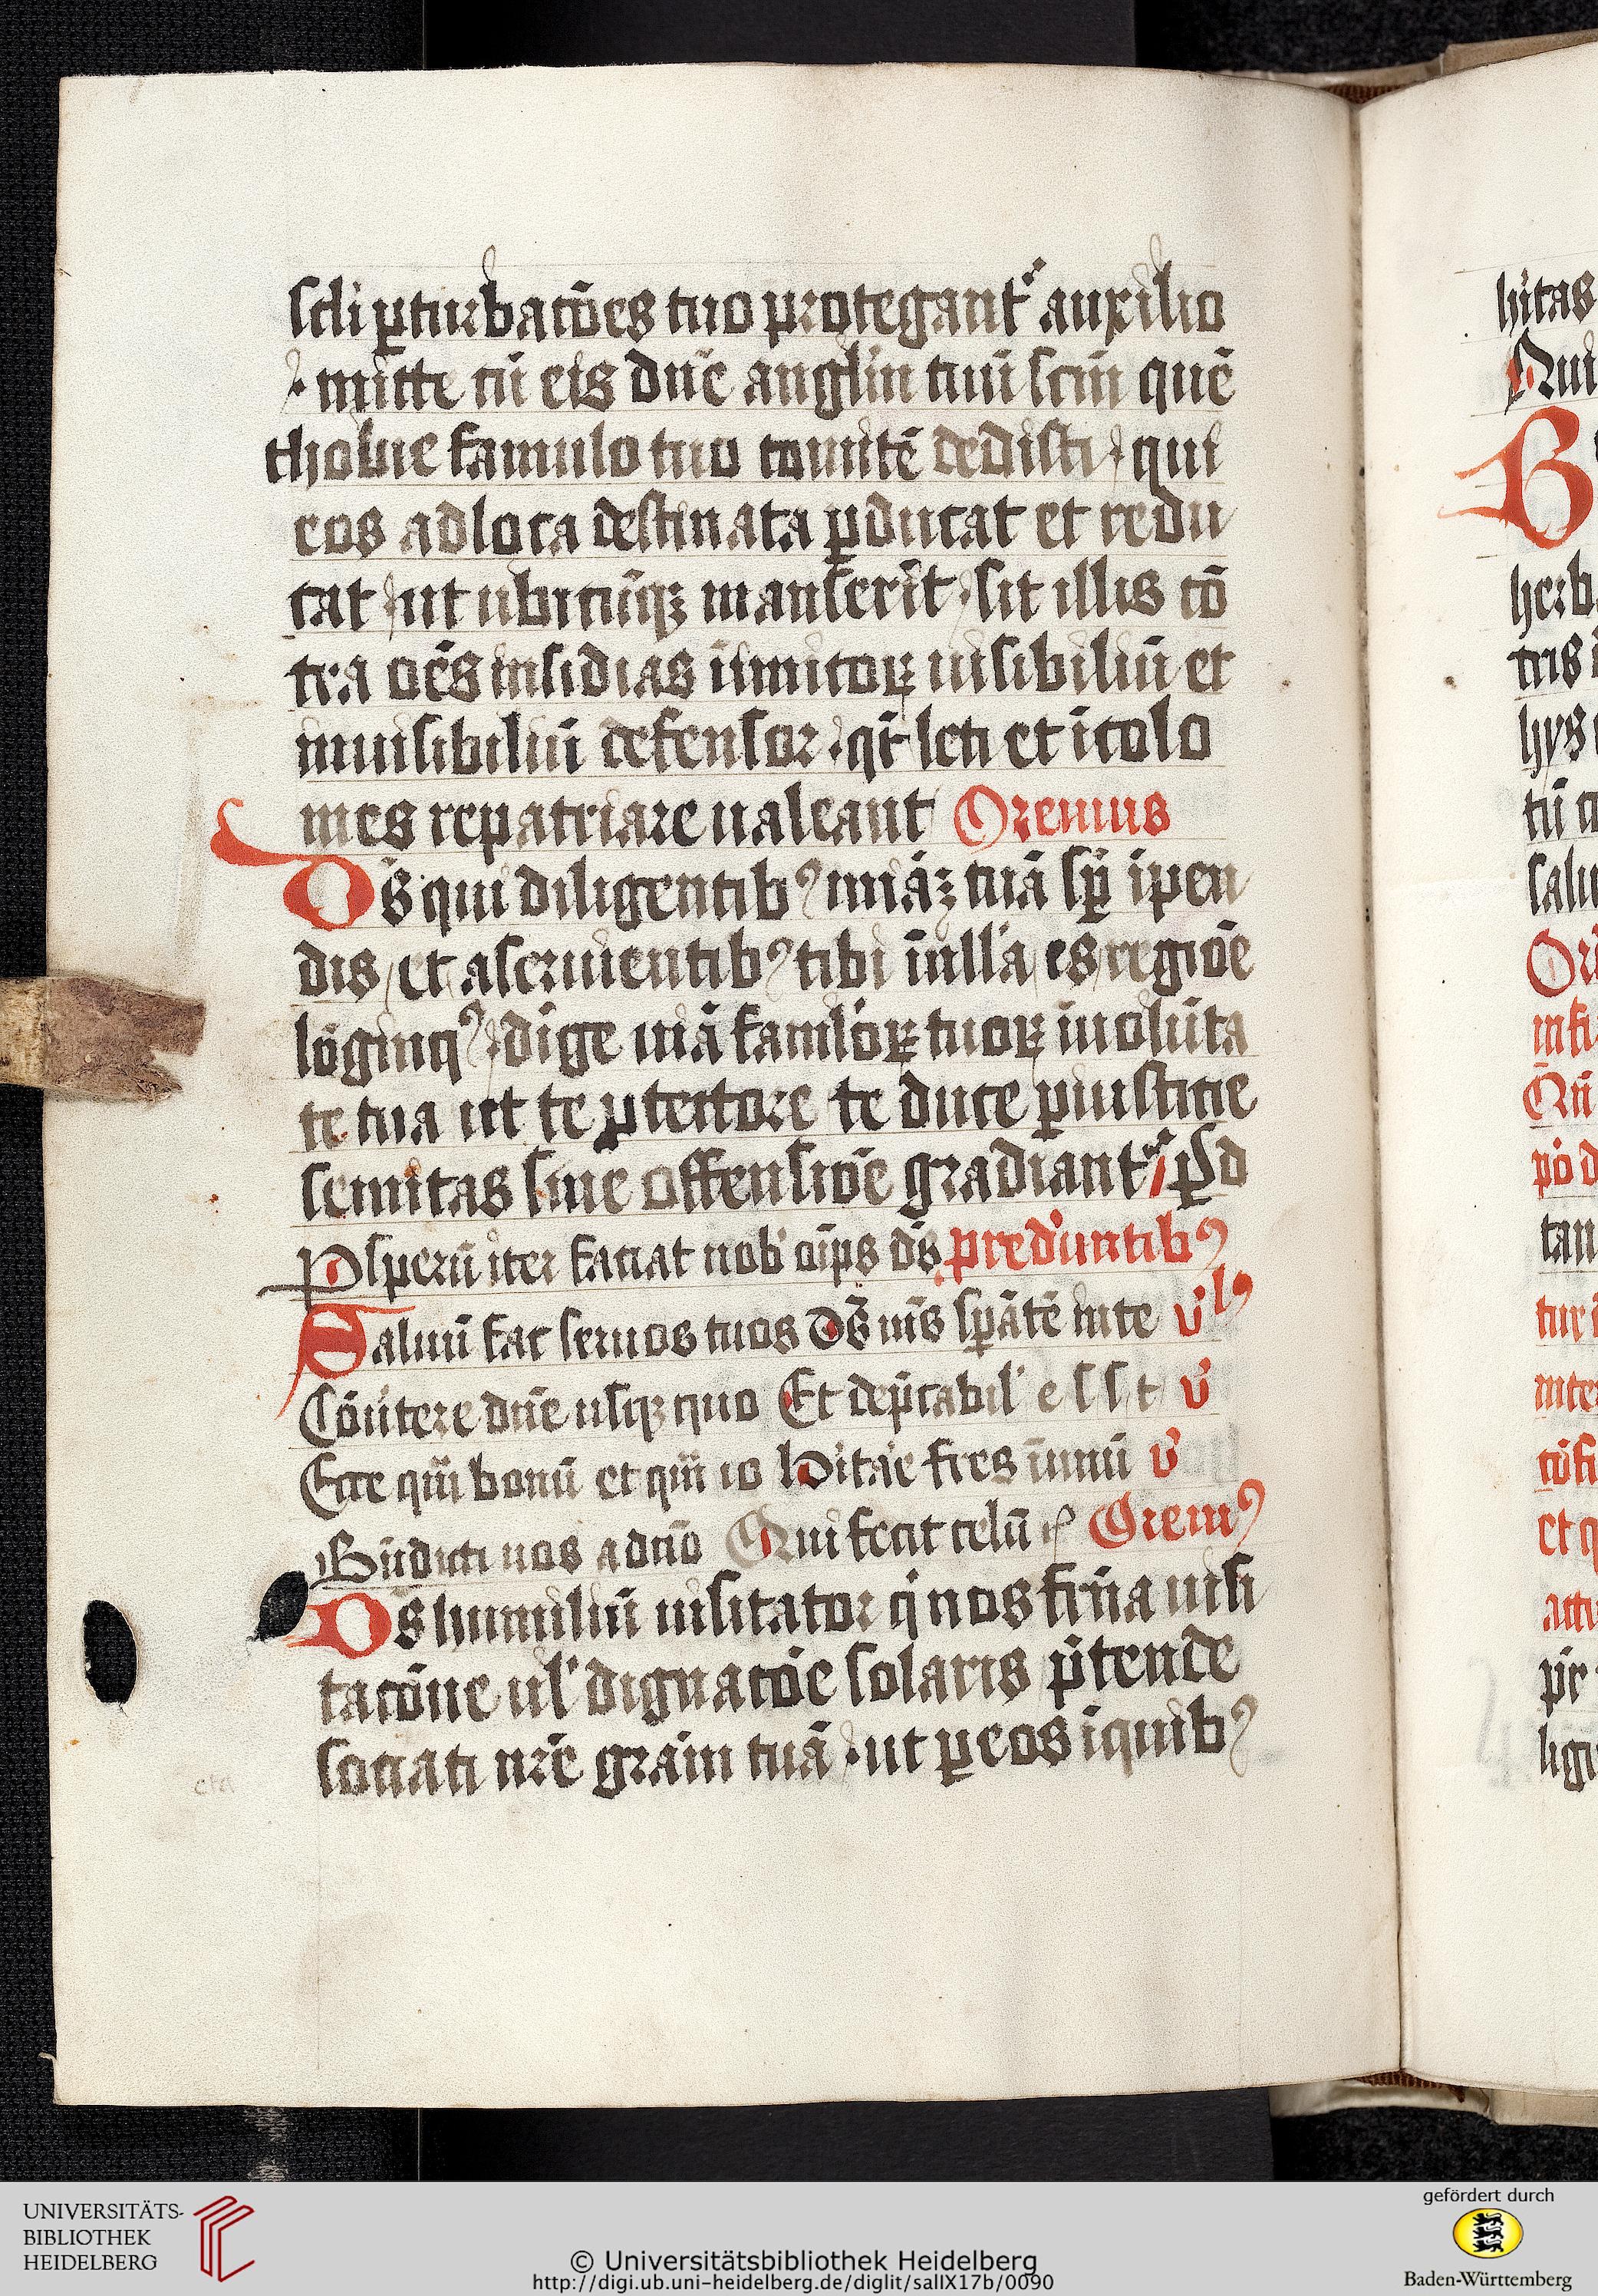 scĺi ꝑturbatōes tuo protegantr auxilio
mitte cū eis dn̄e angl̄m tuū scm̄ quē
thobie famulo tuo comitē dedisti qui
eos ad loca destinata ꝑducat et redu
cat ut ubicūqꝫ manserīt sit illis cō
tra oēs insidias iimicoꝝ uisibiliū et
inuisibiliū defensor qt̄ leti et īcolo
mes repatriare ualeant Oremus
Ds̄ qui diligentibꝰ mīāꝫ tuā sꝑ īpen
dis et aseruientibꝰ tibi īnulla es regiōe
lōginqꝰ dīge uiā famĺoꝝ tuoꝝ īuolūta
te tua ut te ꝓtectore te duce ꝑ iusticie
semitas sine offensiōe gradiantr ꝑ d
Psperū iter faciat nob om̄ps ds̄ pred'untibꝰ
Saluū fac seruos tuos ds̄ ms̄ sꝑātē inte v̄lꝰ
Cōūtere dn̄e usqꝫ quo Et dep̄cabil' e s s t v̄
Ecce qm̄ bonū et qm̄ io Hītáe fres īunū v̄
Bn̄dicti uos adn̄o Qui fecit celū Oremꝰ
Ds̄ humiliū uisitator q̄ nos frn̄a uisi
tacōne ul' dignacōe solaris p̄tende
sociati nr̄e grām tuā ut ꝑ eos īquibꝰ
eta
hitas
Qui
B
herb
tris
hys
tū
salu
mfi
pō d
tan
tur
inte
et q
actu
pīe
ligi
UNIVERSITÄTS-
BIBLIOTHEK
HEIDELBERG
© Universitätsbibliothek Heidelberg
http://digi.ub.uni-heidelberg.de/diglit/salIX17b/0090
gefördert durch
Baden-Württemberg